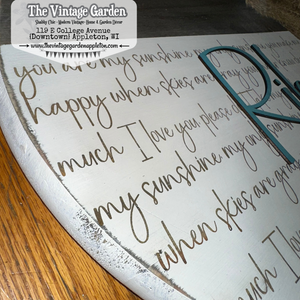 The Vintage Garden
Shabby Chic · Modern Vintage · Home & Garden Decor
119 E College Avenue
(Downtown) Appleton, WI
www.thevintagegardenappleton.com
you are my sunshine my
happy when skies are gray you
much I love you please d
my sunshine my on
when skies are gra
much I lo